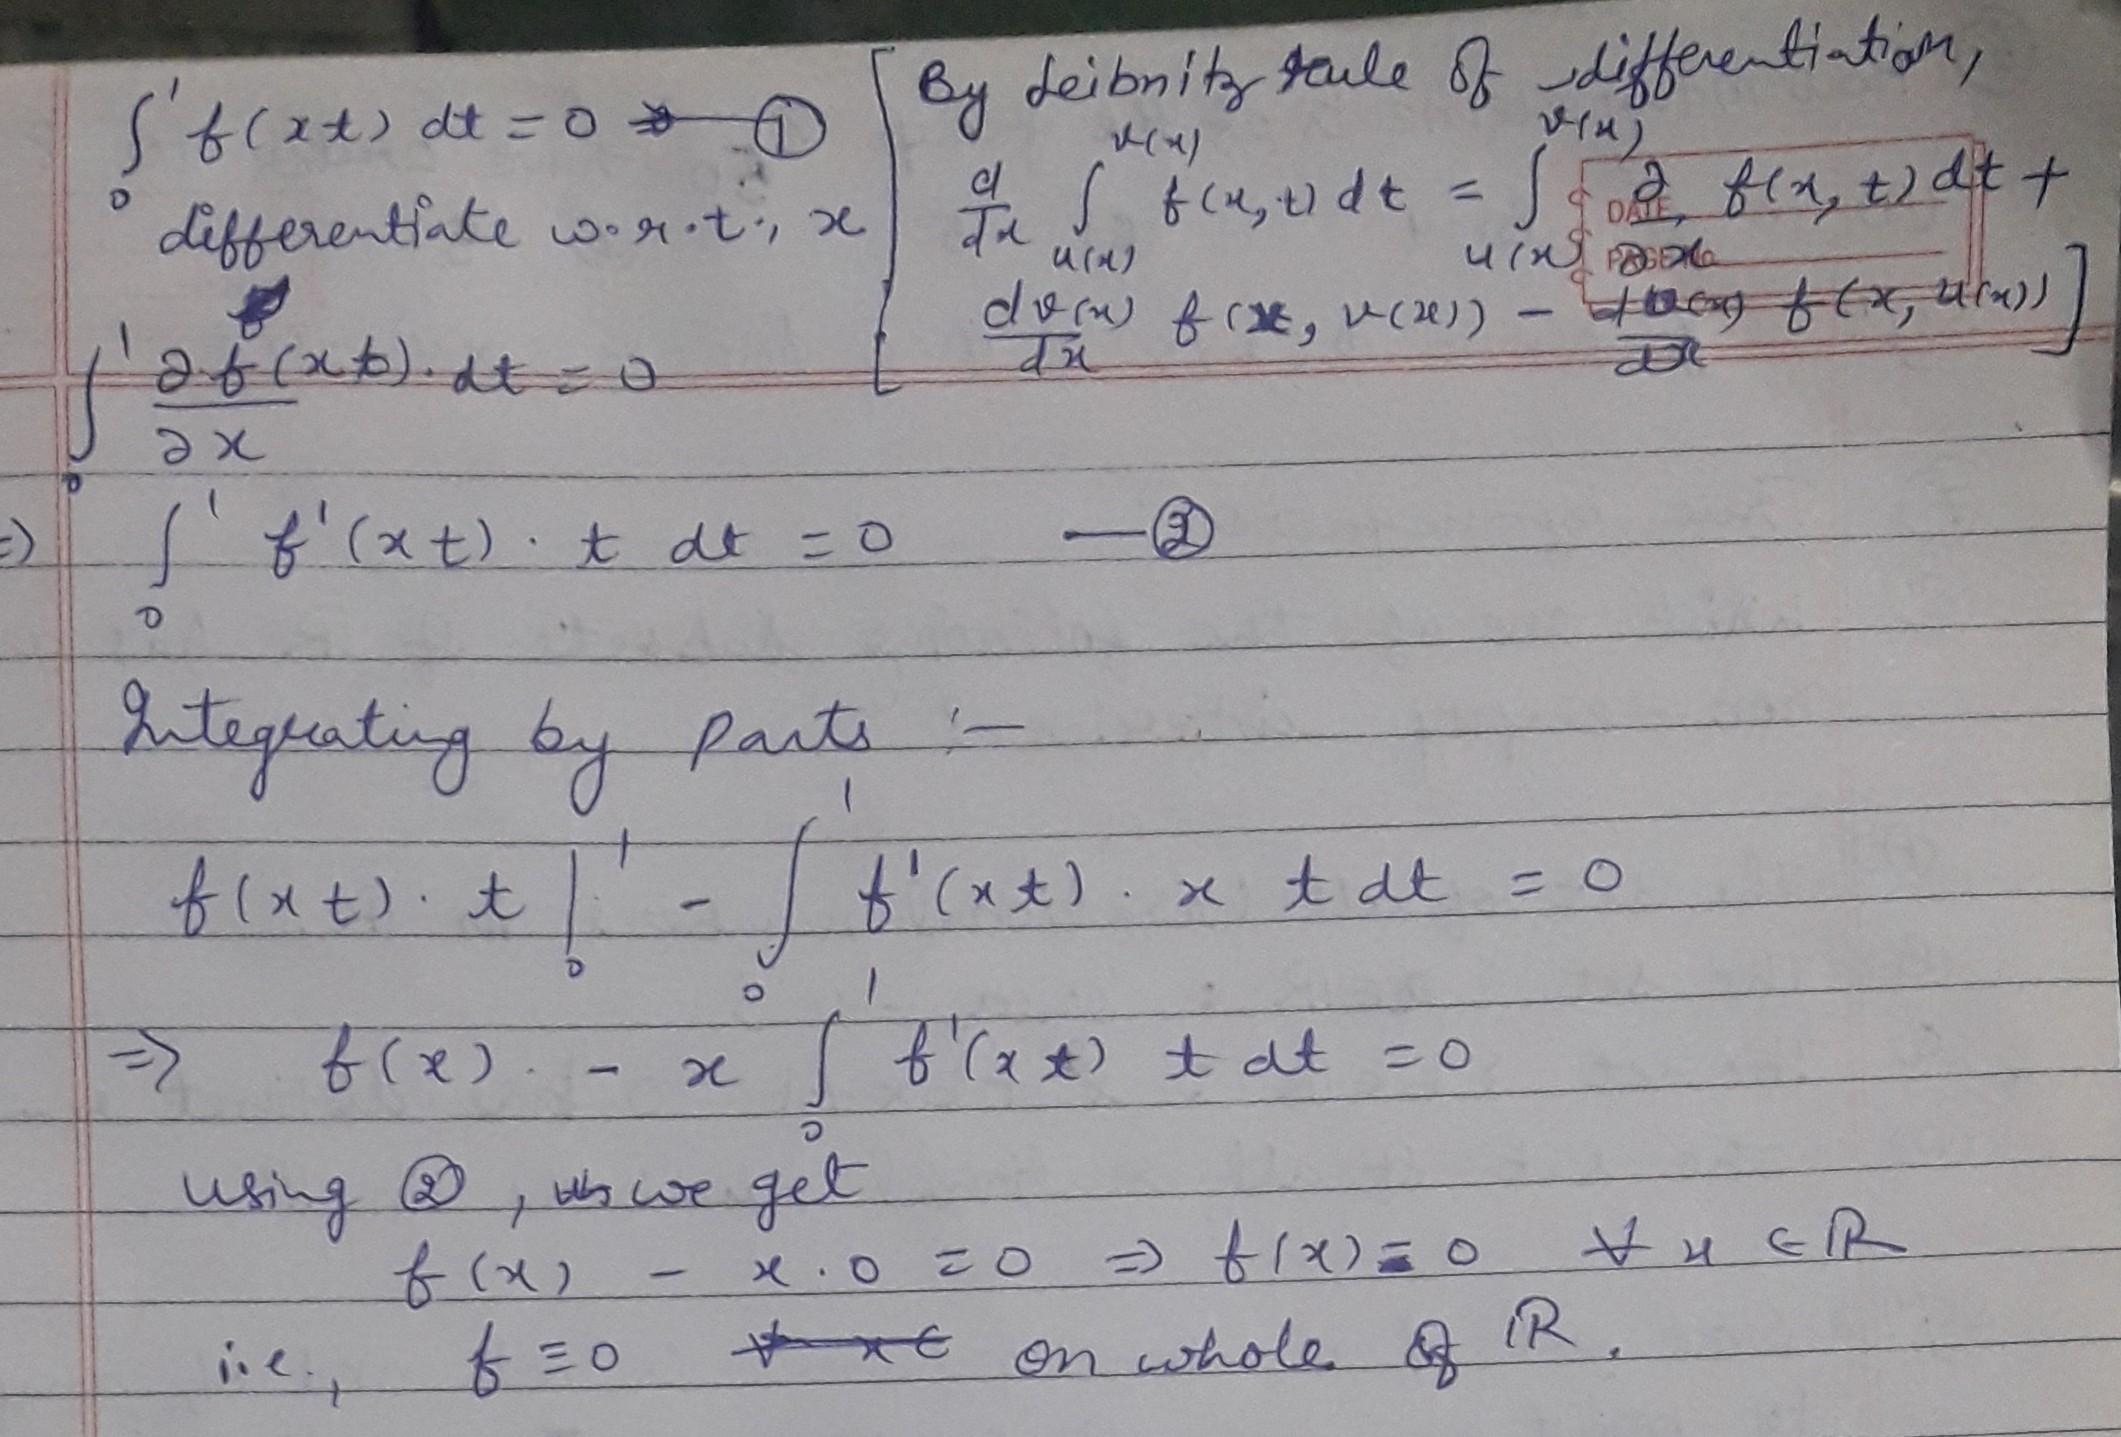 ∫₀¹ f(xt) dt = 0 — ①
differentiate w.r.t., x
[ By Leibnitz rule of differentiation,
d/dx ∫_{u(x)}^{v(x)} f(x,t) dt = ∫_{u(x)}^{v(x)} ∂/∂x f(x,t) dt +
dv(x)/dx f(x, v(x)) − du(x)/dx f(x, u(x)) ]
DATE
PAGE
∫₀¹ ∂f(xt)/∂x . dt = 0
=) ∫₀¹ f'(xt) . t dt = 0 — ②
Integrating by parts :–
f(xt) . t |₀¹ − ∫₀¹ f'(xt) . x t dt = 0
=> f(x) . − x ∫₀¹ f'(xt) t dt = 0
using ②, we get
f(x) − x . 0 = 0 => f(x) = 0 ∀ x ∈ ℝ
i.e., f ≡ 0 on whole of ℝ.